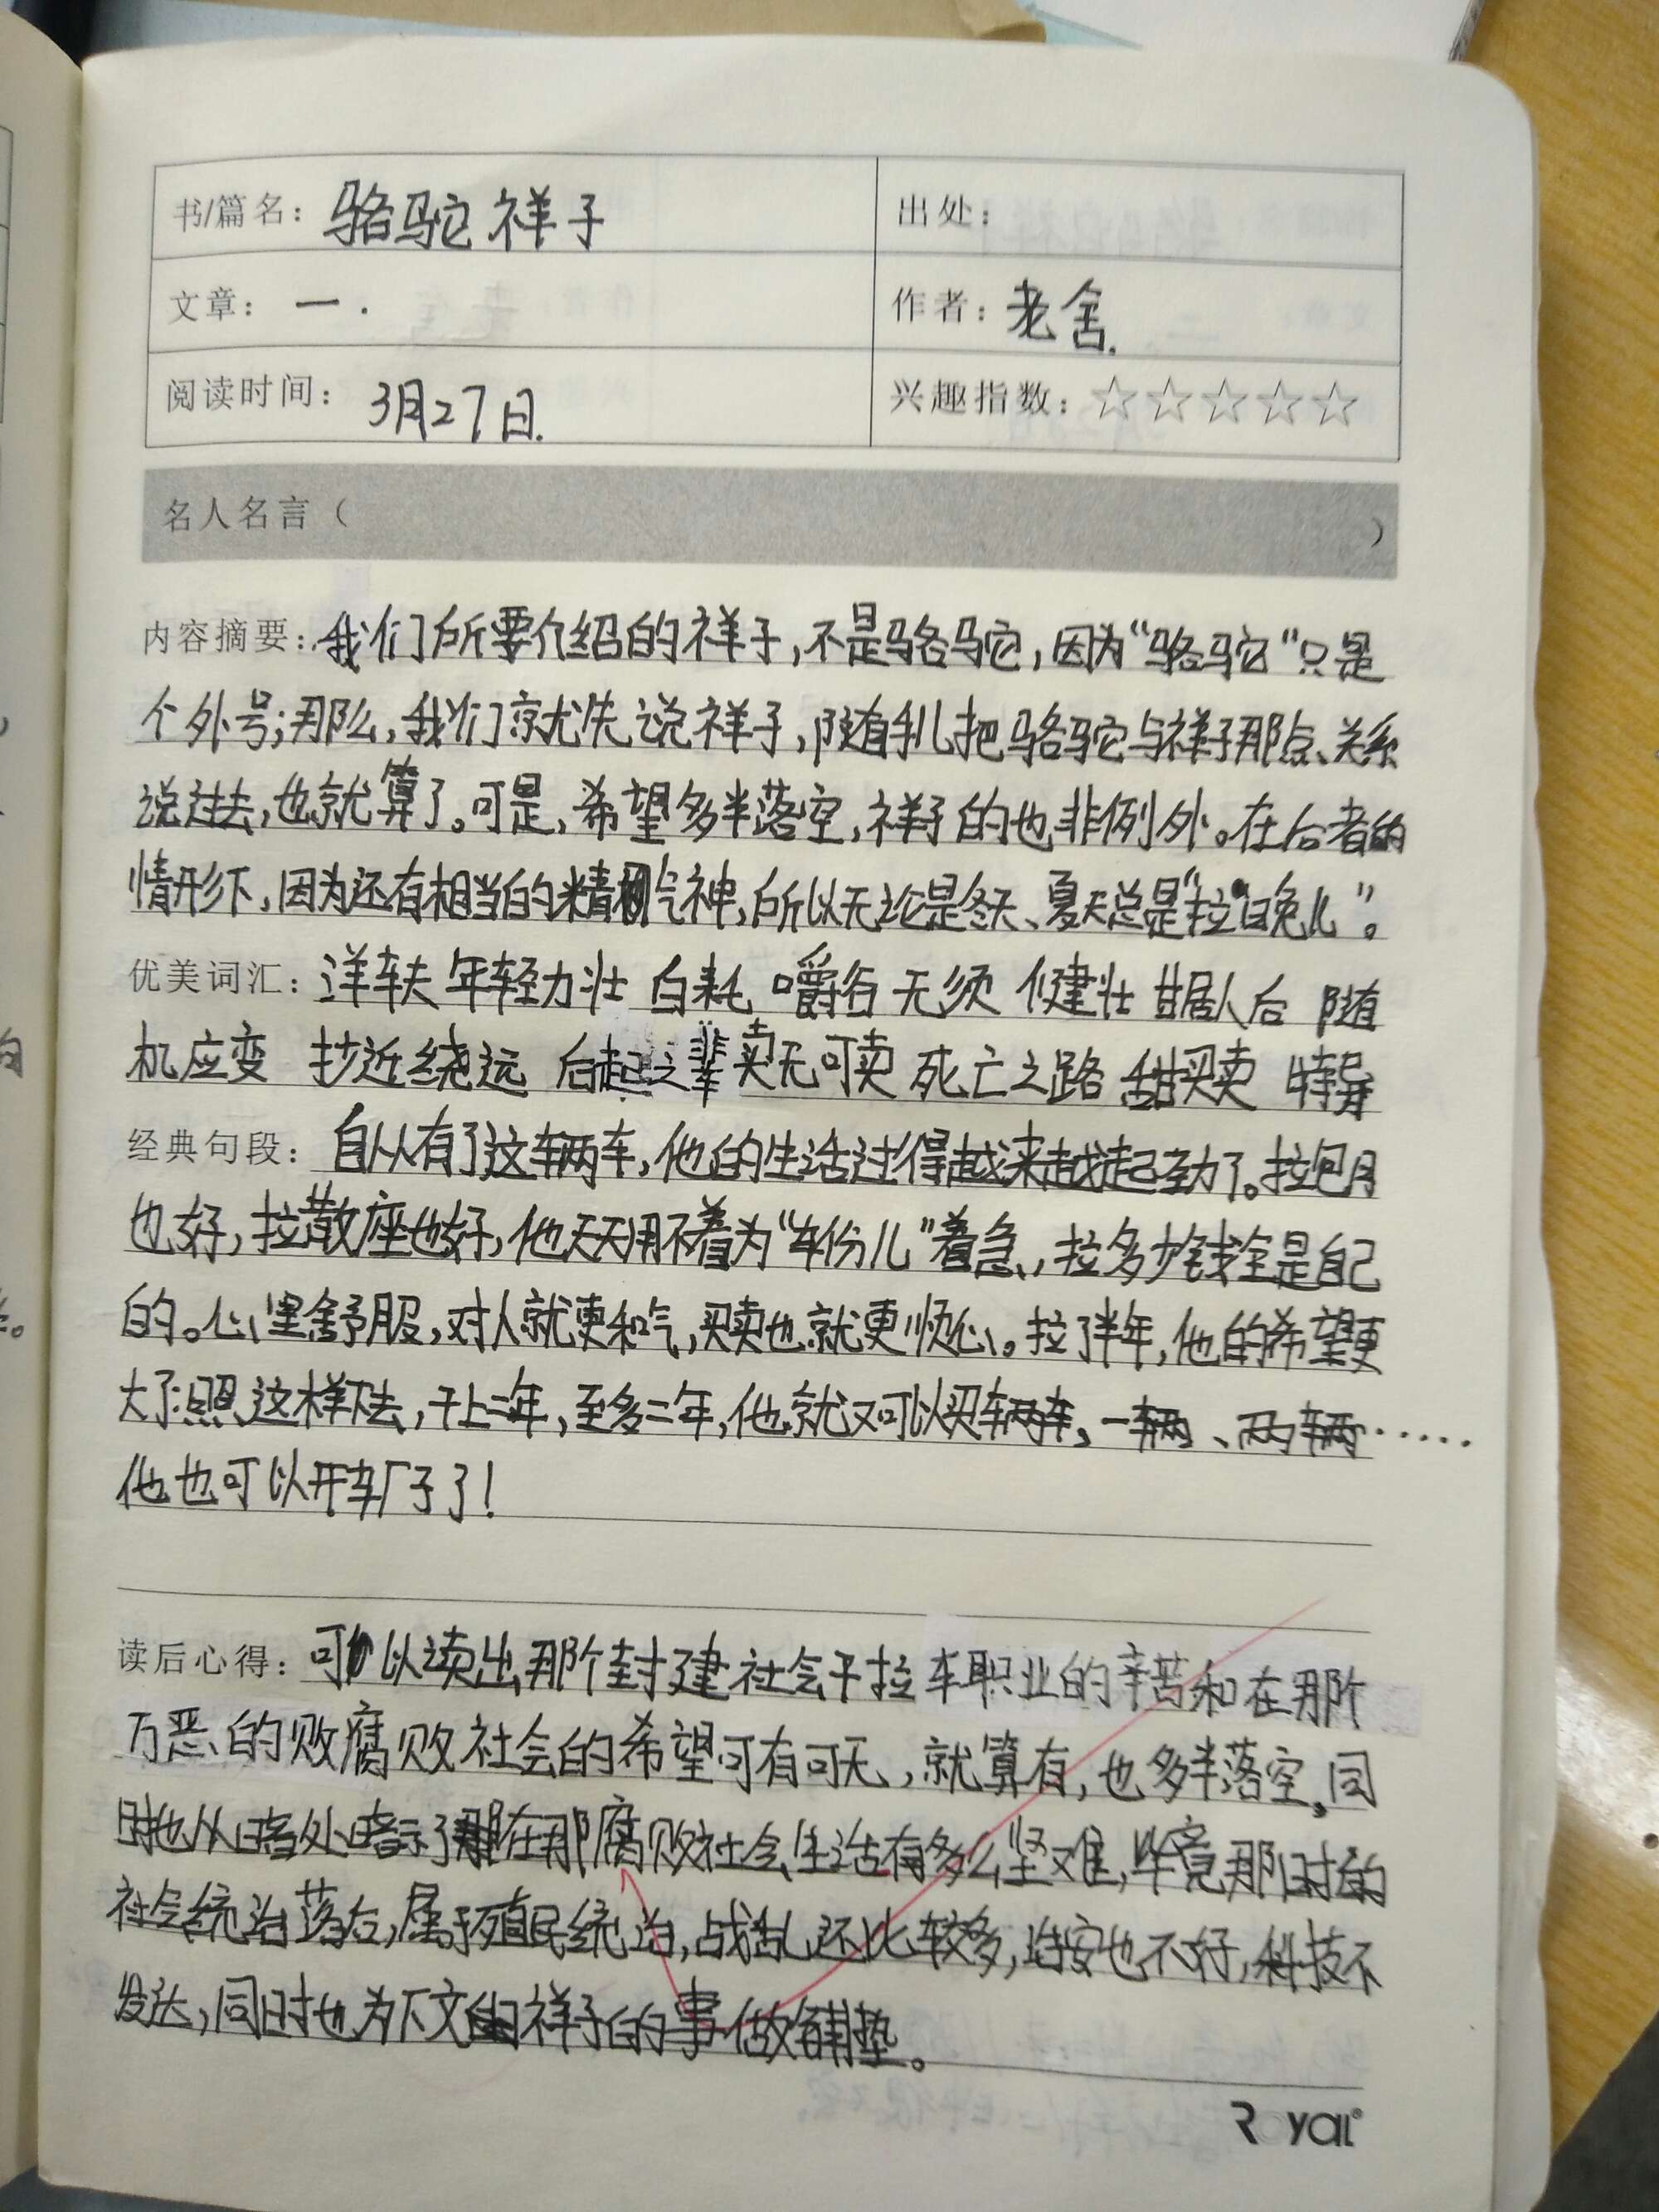 书/篇名：骆驼祥子 出处：
文章：一. 作者：老舍.
阅读时间：3月27日. 兴趣指数：☆☆☆☆☆
名人名言（ ）
内容摘要：我们所要介绍的祥子，不是骆驼，因为“骆驼”只是
个外号；那么，我们就先说祥子，随手儿把骆驼与祥子那点关系
说过去，也就算了。可是，希望多半落空，祥子的也非例外。在后者的
情形下，因为还有相当的精气神，所以无论是冬天、夏天总是“拉白晚儿”。
优美词汇：洋车夫 年轻力壮 白耗 嚼谷 无须 健壮 甘居人后 随
机应变 抄近绕远 后起之辈 卖无可卖 死亡之路 甜买卖
经典句段：自从有了这辆车，他的生活过得越来越起劲了。拉包月
也好，拉散座也好，他天天用不着为“车份儿”着急，拉多少钱全是自己
的。心里舒服，对人就更和气，买卖也就更顺心。拉了半年，他的希望更
大了：照这样下去，干上二年，至多二年，他就又可以买辆车，一辆、两辆……
他也可以开车厂子了！
读后心得：可以读出那个封建社会干拉车职业的辛苦和在那个
万恶的败腐败社会的希望可有可无，就算有，也多半落空，同
时也从暗处暗示了在那腐败社会生活有多么坚难，毕竟那时的
社会统治落后，属于殖民统治，战乱还比较多，治安也不好，科技不
发达，同时也为下文祥子的事做铺垫。
Royal